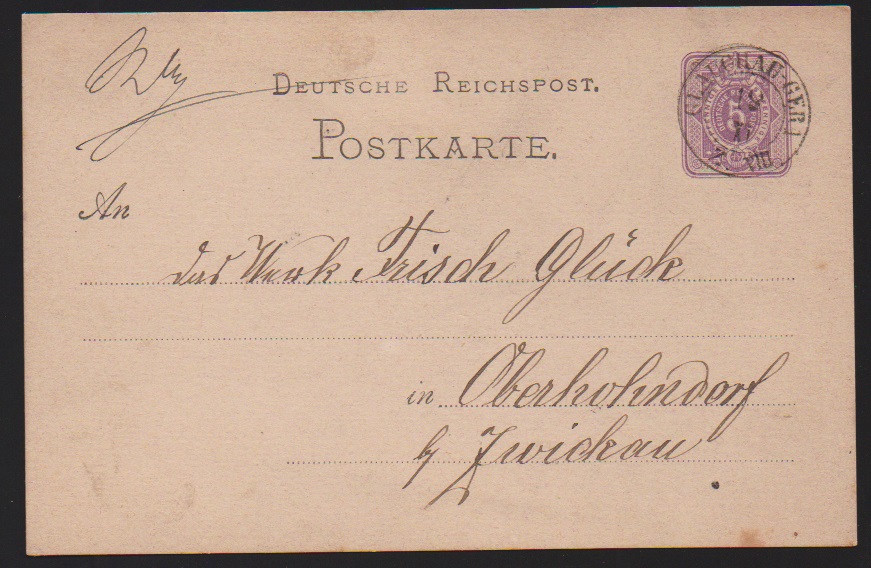 DEUTSCHE REICHSPOST.
POSTKARTE.
GLAUCHAU-GERA
5
VIII
An
das Werk Frisch Glück
in Oberhohndorf
b/ Zwickau